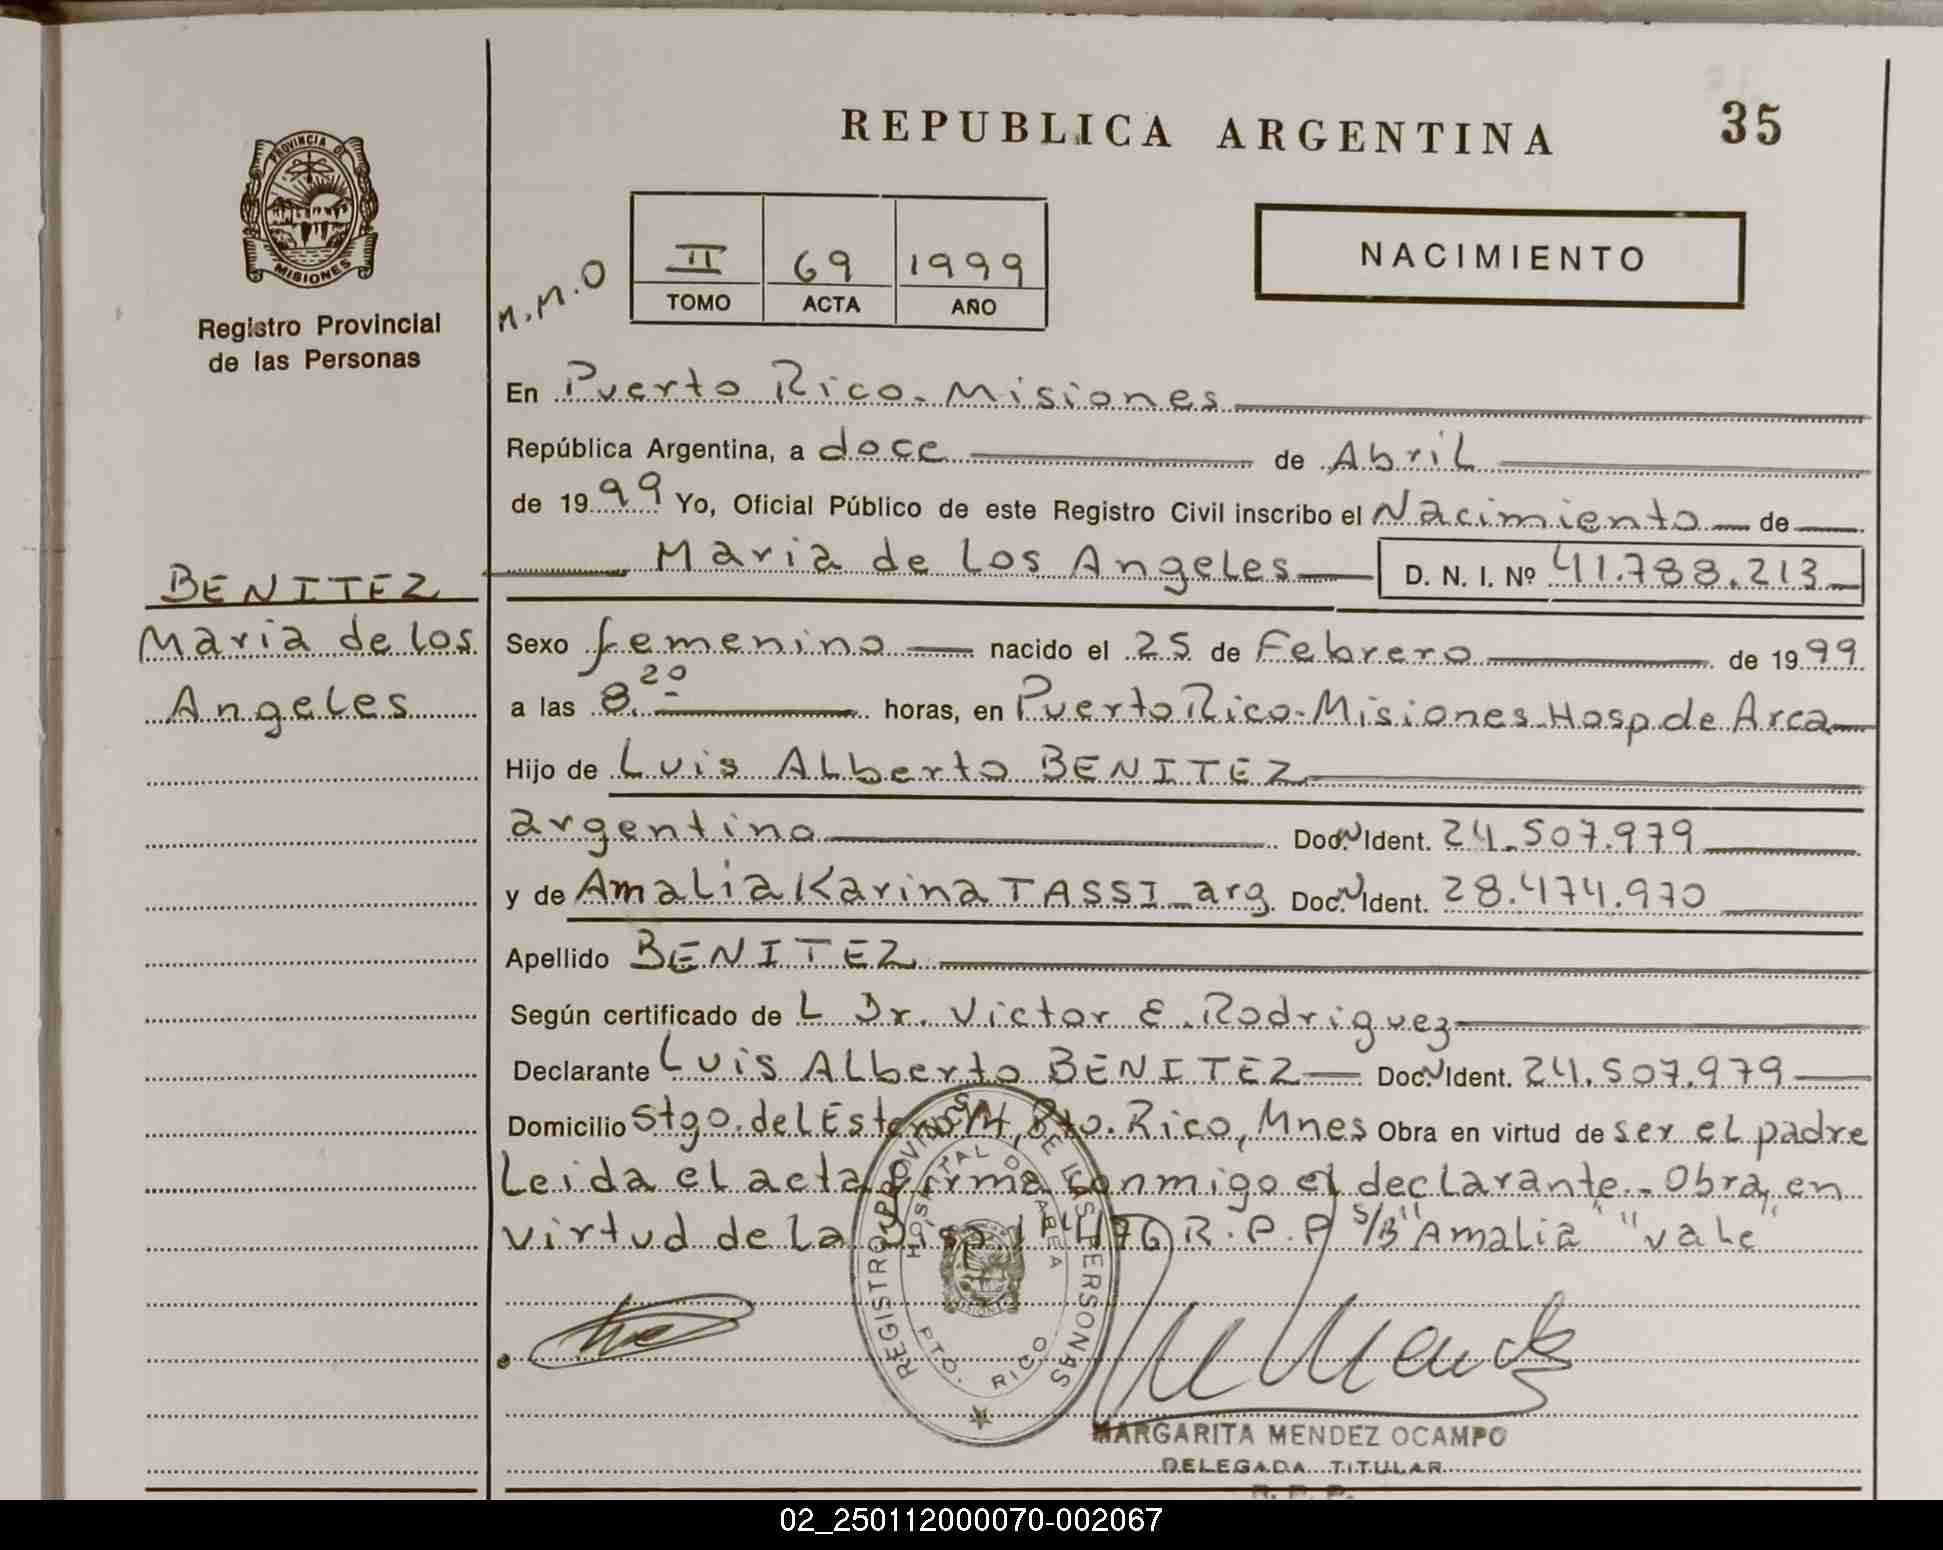 REPUBLICA ARGENTINA
35
PROVINCIA DE
MISIONES
Registro Provincial
de las Personas
M.M.O
II 69 1999
TOMO ACTA AÑO
NACIMIENTO
En Puerto Rico - Misiones
República Argentina, a doce de Abril
de 1999 Yo, Oficial Público de este Registro Civil inscribo el Nacimiento de
Maria de Los Angeles D. N. I. Nº 41.788.213
BENITEZ
Maria de Los
Angeles
Sexo femenino nacido el 25 de Febrero de 1999
a las 8.20 horas, en Puerto Rico - Misiones Hosp de Area
Hijo de Luis Alberto BENITEZ
argentino Doc. N Ident. 24.507.979
y de Amalia Karina TASSI - arg. Doc. N Ident. 28.474.970
Apellido BENITEZ
Según certificado de L Dr. Victor E. Rodriguez
Declarante Luis Alberto BENITEZ Doc. N Ident. 24.507.979
Domicilio Stgo. del Estero S/N, Pto. Rico, Mnes Obra en virtud de ser el padre
Leida el acta firma conmigo el declarante - Obra en
virtud de la Disp. R.P.P S/B "Amalia" "vale"
REGISTRO PROVINCIAL DE LAS PERSONAS
HOSPITAL DE AREA
PTO. RICO
MARGARITA MENDEZ OCAMPO
DELEGADA TITULAR
R. P. P.
02_250112000070-002067